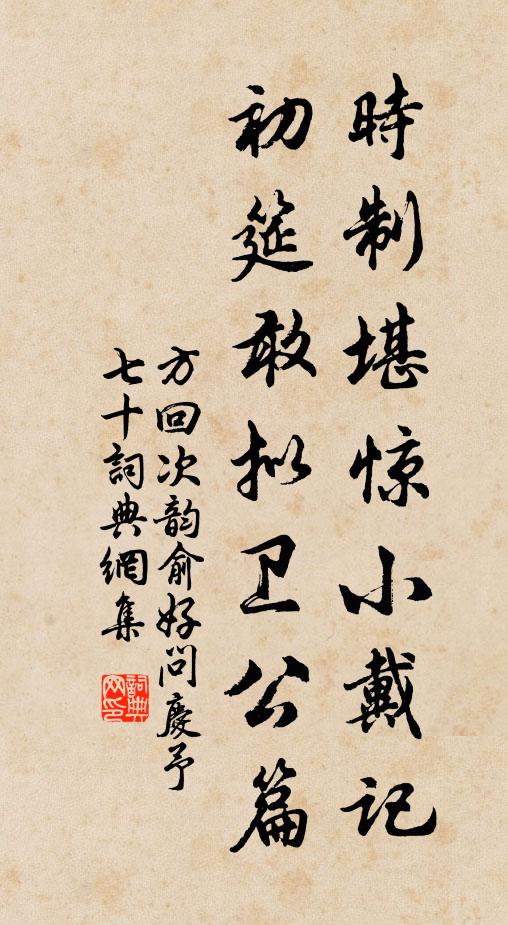 時制堪惊小戴記
初筵敢拟卫公篇
方回次韵俞好问慶予
七十詞典網集
詞典
网印